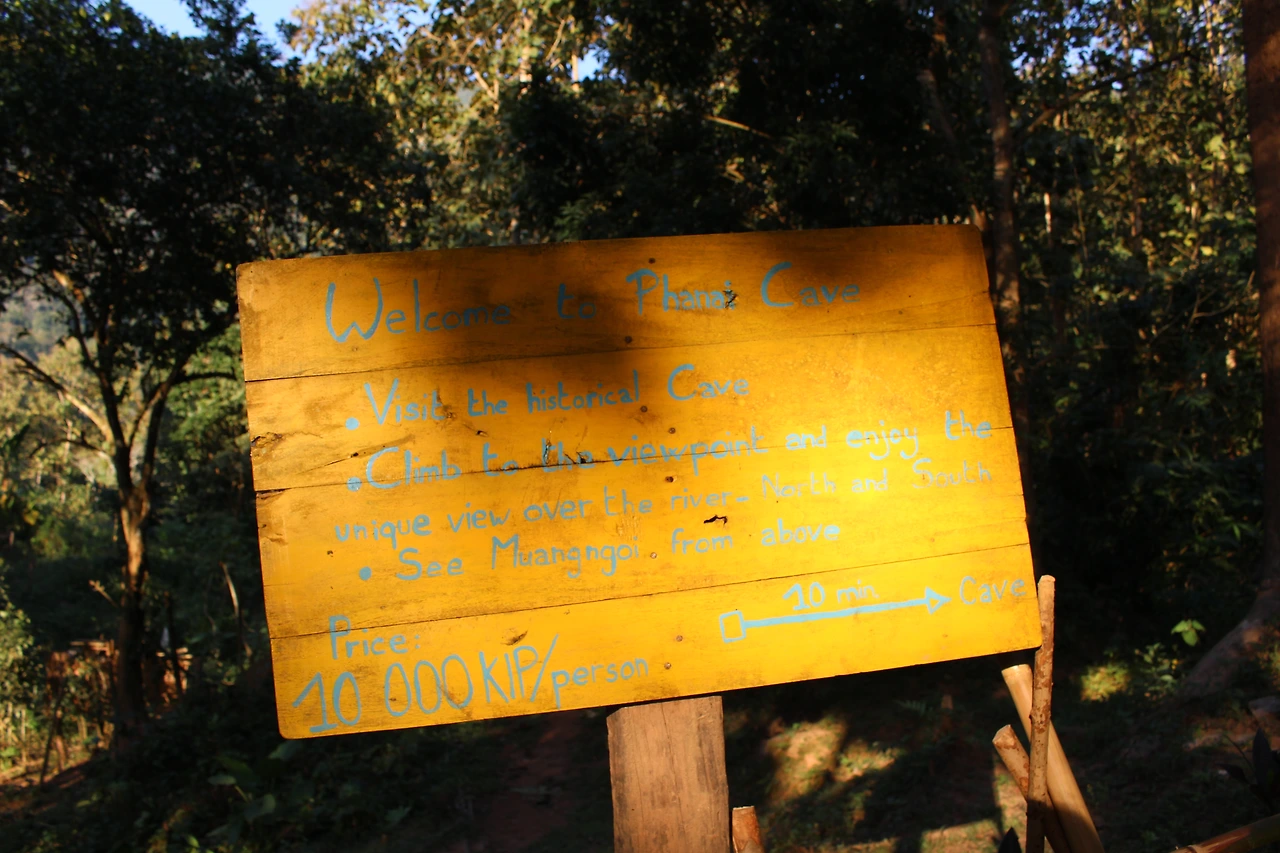 Welcome to Phanai Cave
• Visit the historical Cave
• Climb to the viewpoint and enjoy the
unique view over the river - North and South
• See Muangngoi from above
10 min
Cave
Price:
10 000 KIP/person